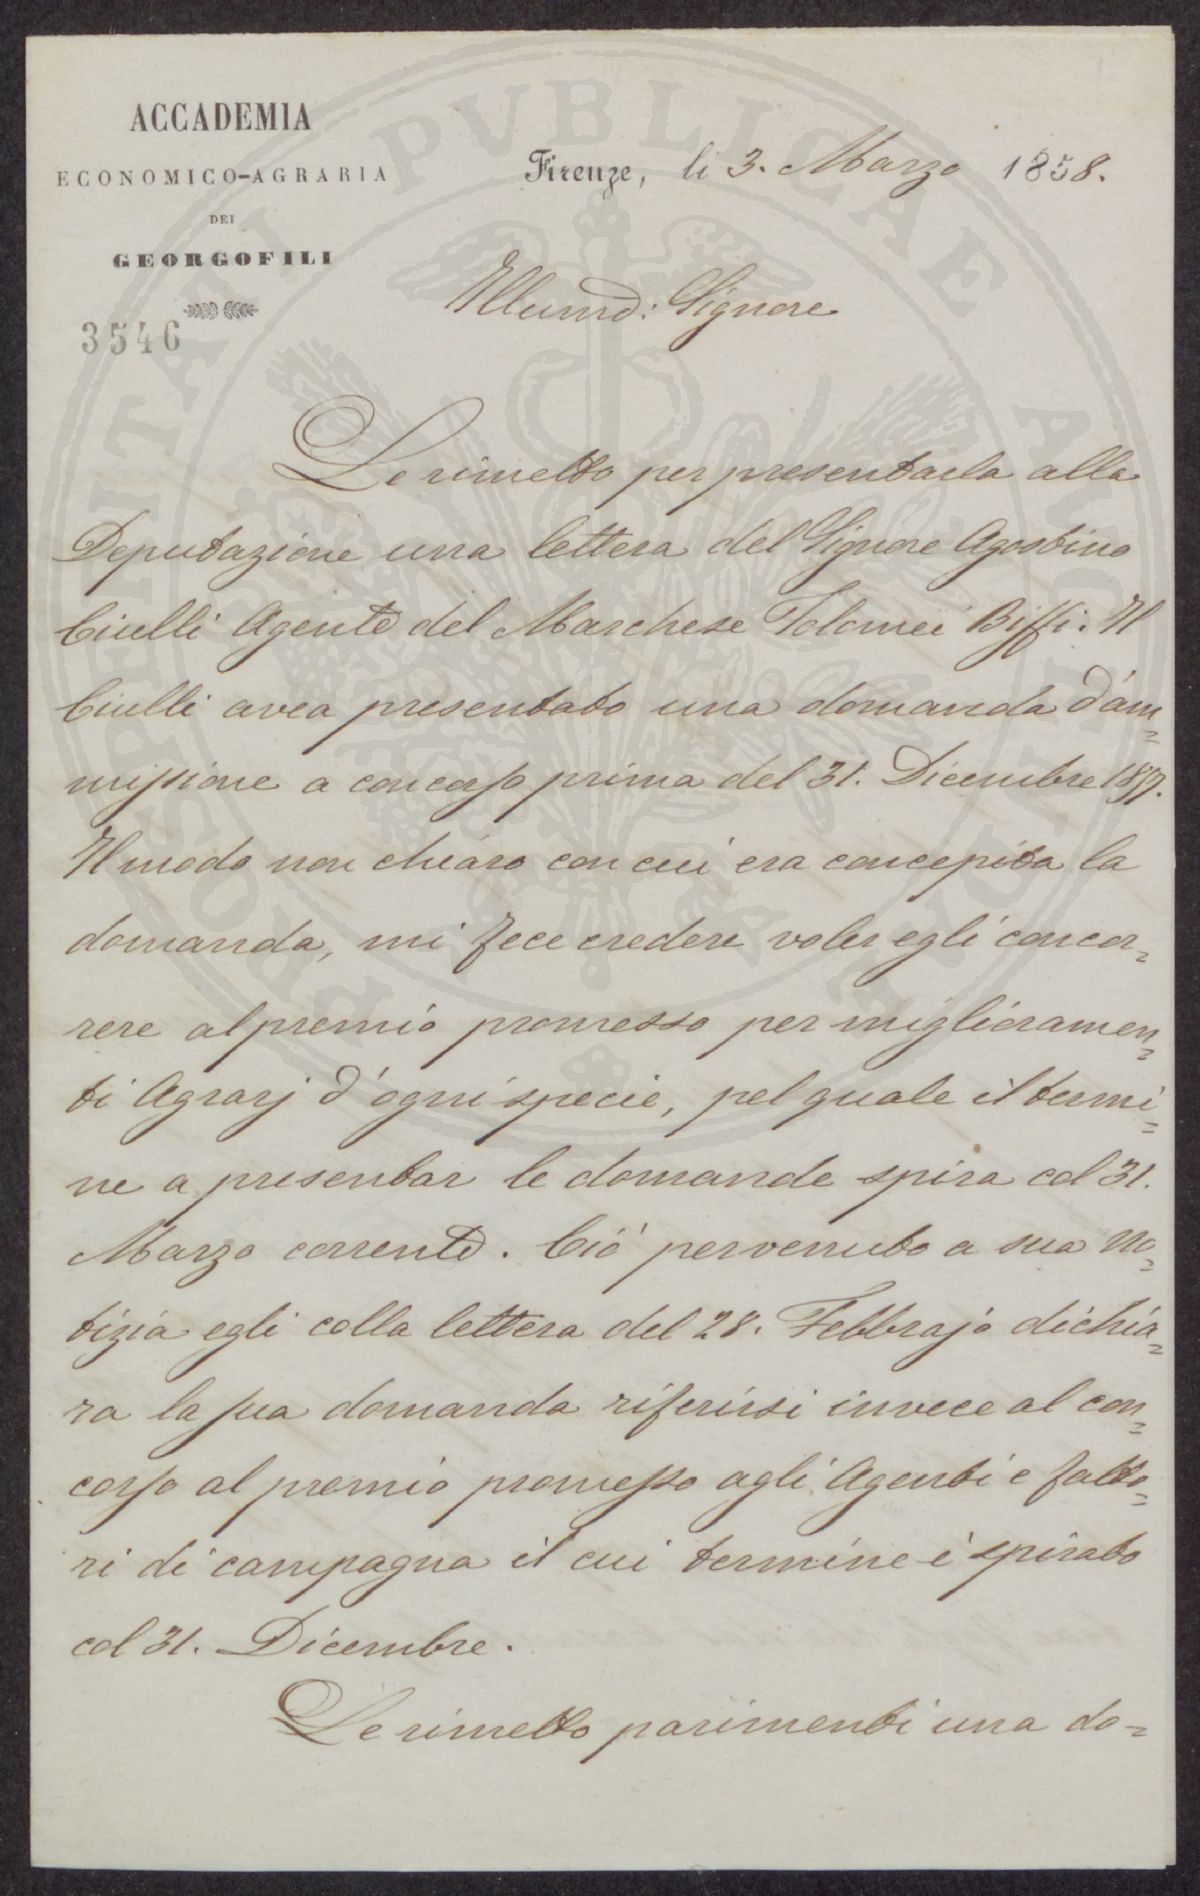 ACCADEMIA
ECONOMICO-AGRARIA
DEI
GEORGOFILI
3546
Firenze, li 3. Marzo 1858.
Illumo: Signore
Le rimetto per presentarla alla
Deputazione una lettera del Signore Agostino
Ciulli Agente del Marchese Tolomei Biffi. Il
Ciulli avea presentato una domanda d'am=
missione a concorso prima del 31. Dicembre 1857.
Il modo non chiaro con cui era concepita la
domanda, mi fece credere voler egli concor=
rere al premio promesso per miglioramen=
ti Agrarj d'ogni specie, pel quale il termi=
ne a presentar le domande spira col 31.
Marzo corrente. Ciò pervenuto a sua no=
tizia egli colla lettera del 28. Febbrajo dichia=
ra la sua domanda riferirsi invece al con=
corso al premio promesso agli Agenti e fatto=
ri di campagna il cui termine è spirato
col 31. Dicembre.
Le rimetto parimenti una do=
PROSPERITATI PVBLICAE AVGENDAE